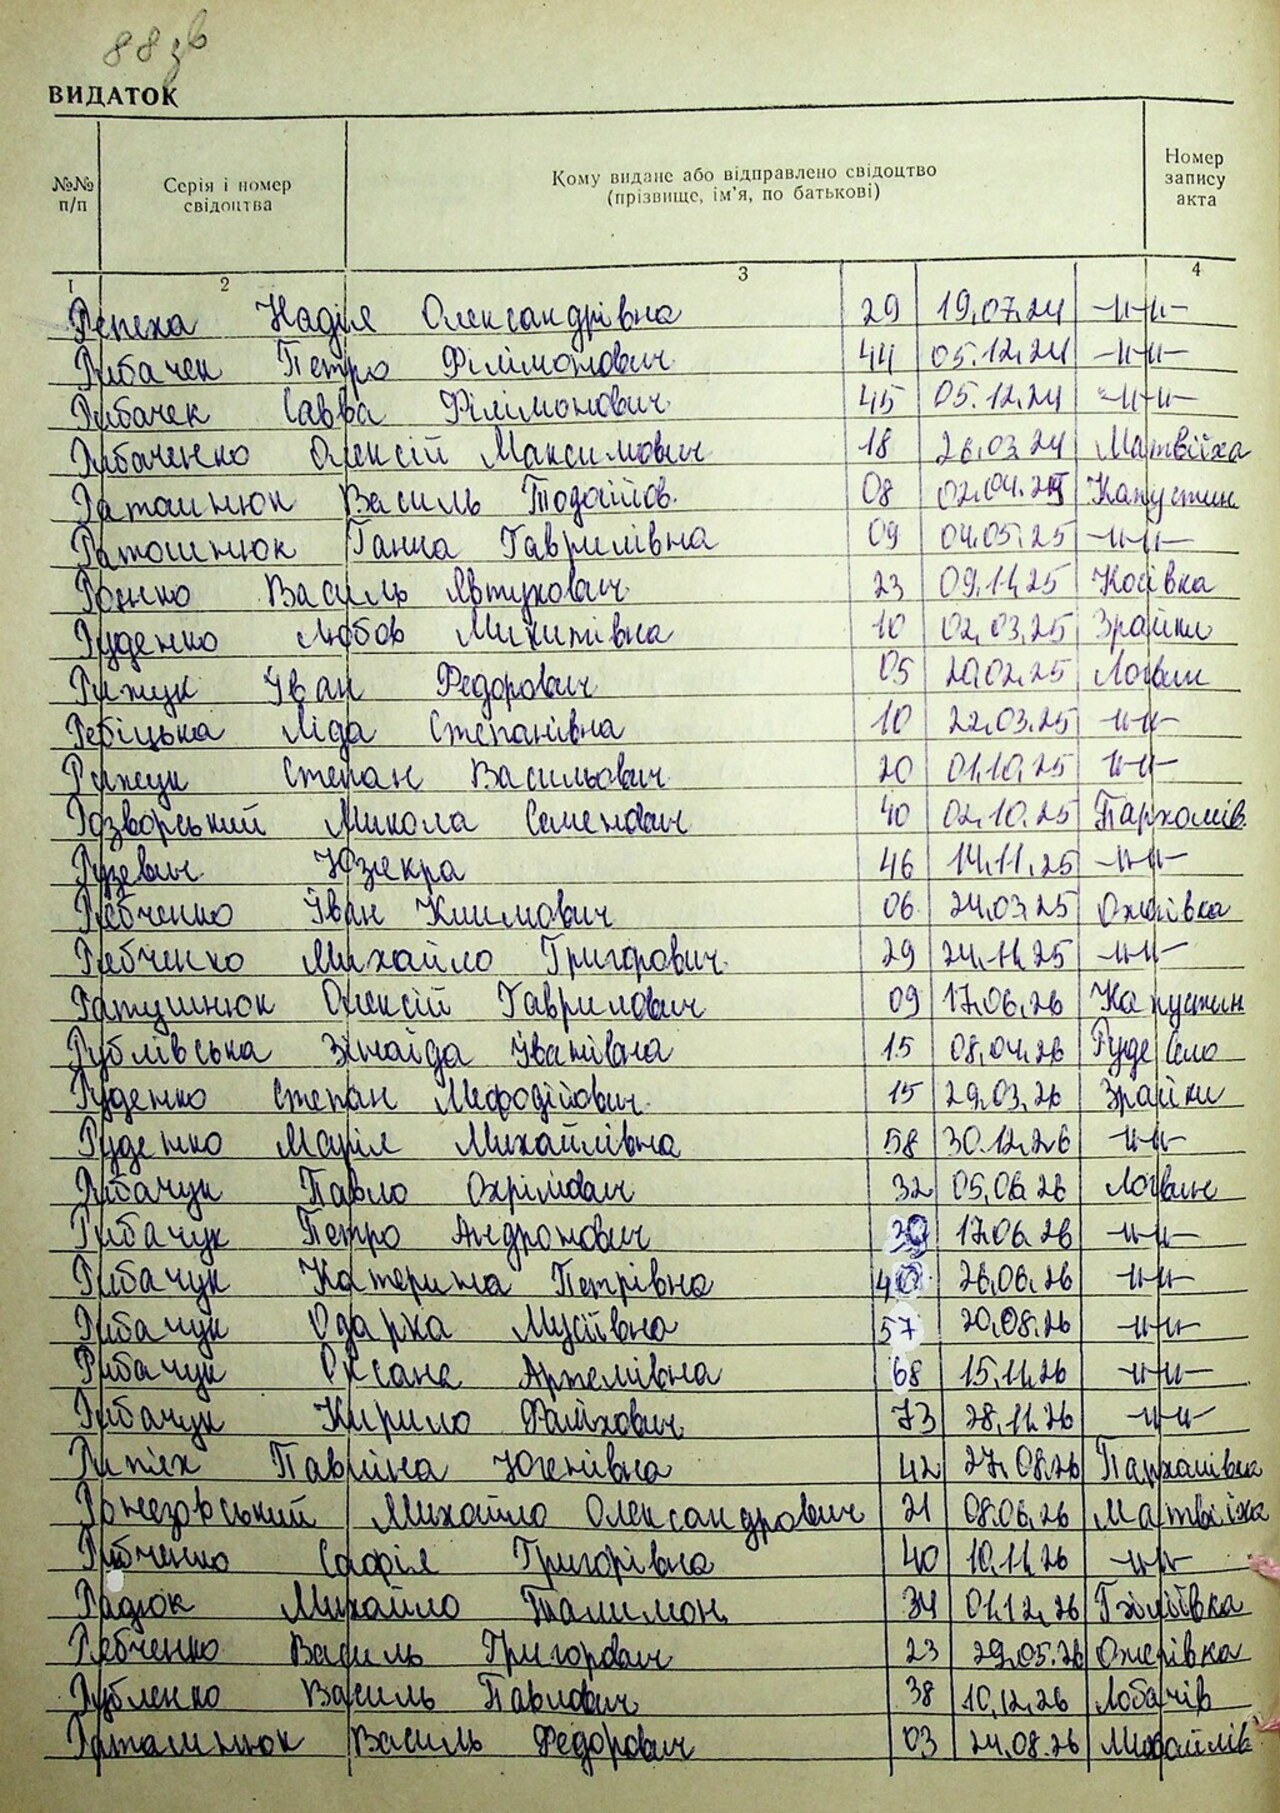 88 зв
ВИДАТОК
№№ п/п
Серія і номер свідоцтва
Кому видане або відправлено свідоцтво (прізвище, ім'я, по батькові)
Номер запису акта
1 2 3 4
Репеха Надія Олександрівна 29 19.07.24 -//-//-
Рибачек Петро Філімонович 44 05.12.24 -//-//-
Рибачек Савва Філімонович 45 05.12.24 -//-//-
Рибаченко Олексій Максимович 18 26.03.24 Матвіїха
Ратошнюк Василь Тодойов. 08 02.04.25 Капустин
Ратошнюк Ганна Гаврилівна 09 04.05.25 -//-//-
Роєнко Василь Явтухович 23 09.11.25 Косівка
Руденко Любов Микитівна 10 02.03.25 Зрайки
Рижук Іван Федорович 05 20.02.25 Логвин
Ребіцька Ліда Степанівна 10 22.03.25 -//-//-
Рижук Степан Васильович 20 01.10.25 -//-//-
Розворський Микола Семенович 40 02.10.25 Пархомів.
Рузевич 46 14.11.25 -//-//-
Рябченко Іван Климович 06 24.03.25 Ожгівка
Рябченко Михайло Григорович 29 24.11.25 -//-//-
Ратушнюк Олексій Гаврилович 09 17.06.26 Капустин
Рублівська Зінаїда Іванівна 15 08.04.26 Руде Село
Руденко Степан Мефодійович 15 29.03.26 Зрайки
Руденко Марія Михайлівна 58 30.12.26 -//-//-
Рибачук Павло Охрімович 32 05.06.26 Логвин
Рибачук Петро Андронович 39 17.06.26 -//-//-
Рибачук Катерина Петрівна 40 26.06.26 -//-//-
Рибачук Одарка Мусіївна 57 20.08.26 -//-//-
Рибачук Оксана Артемівна 68 15.11.26 -//-//-
Рибачук Кирило 73 28.11.26 -//-//-
Рип'ях Павліна Югенівна 42 27.08.26 Пархомівка
Михайло Олександрович 21 08.06.26 Матвіїха
Рибченко Софія Григорівна 40 10.11.26 -//-//-
Радюк Михайло Талимон. 34 01.12.26
Рябченко Василь Григорович 23 29.05.26 Ожегівка
Рубленко Василь Павлович 38 10.12.26 Лобачів
Ратошнюк Василь Федорович 03 24.08.26 Михайлів